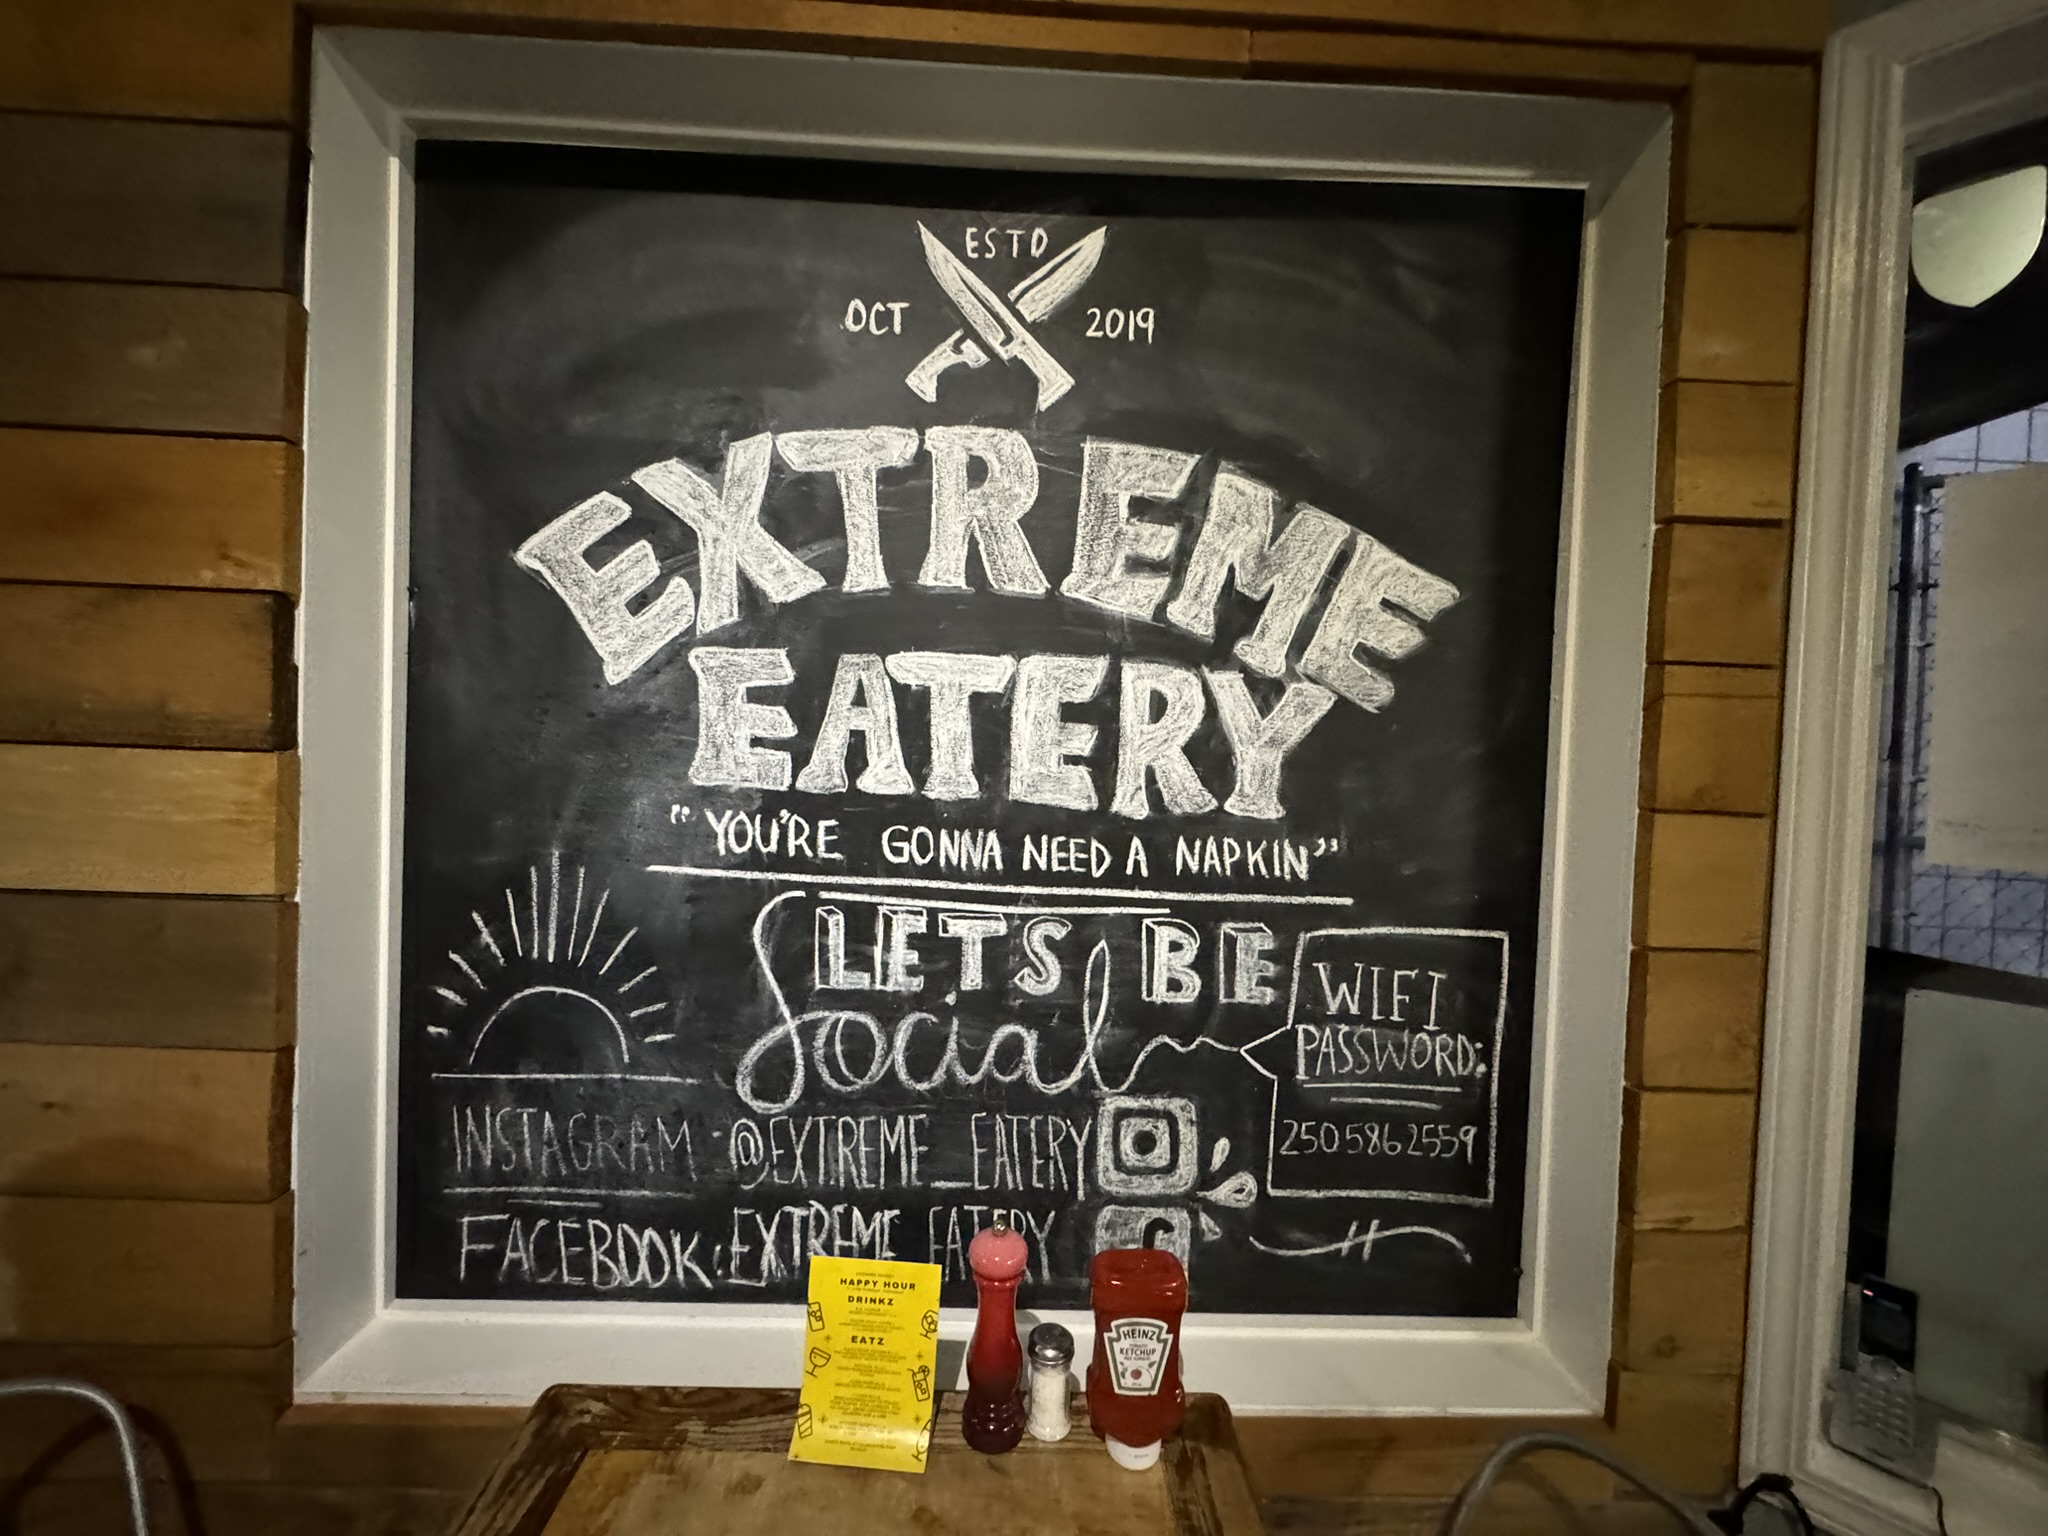 ESTD
OCT 2019
EXTREME
EATERY
"YOU'RE GONNA NEED A NAPKIN"
LETS BE
Social
WIFI
PASSWORD:
2505862559
INSTAGRAM @EXTREME_EATERY
FACEBOOK: EXTREME EATERY
HAPPY HOUR
DRINKZ
EATZ
HEINZ
TOMATO
KETCHUP